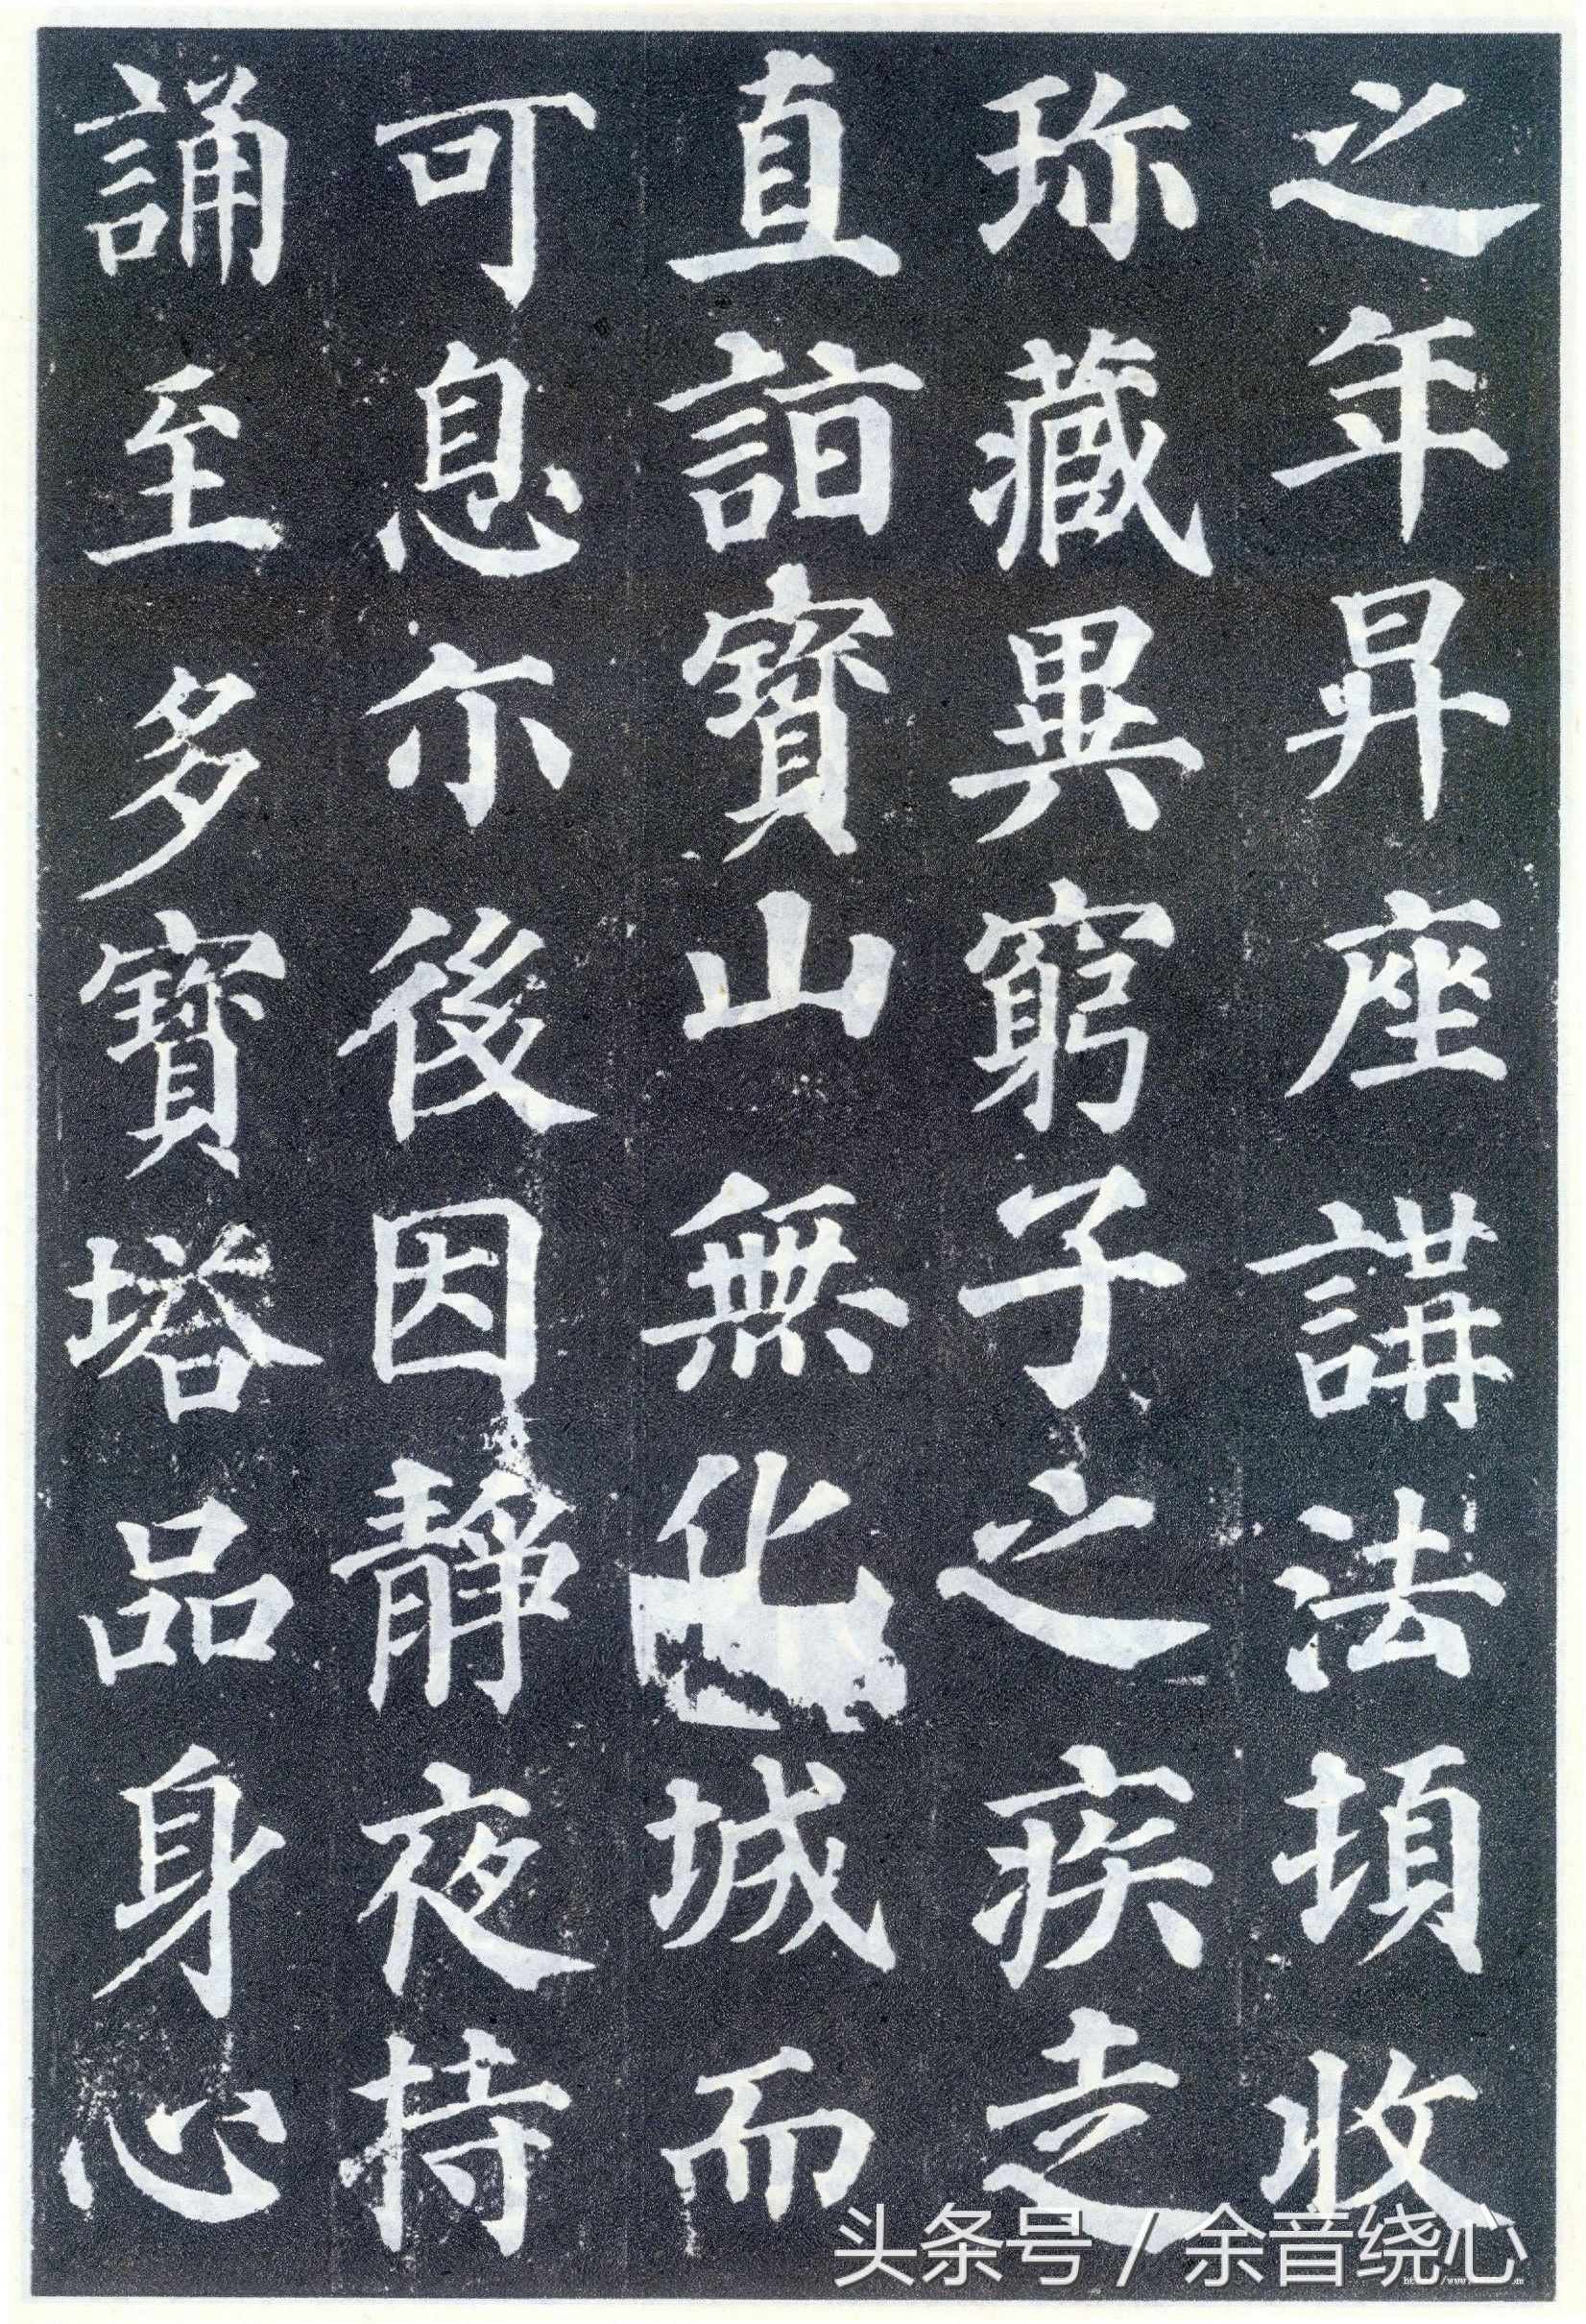 之年昇座講法頓收
珎藏異窮子之疾走
直詣寶山無化城而
可息尒後因靜夜持
誦至多寶塔品身心
头条号 / 余音绕心